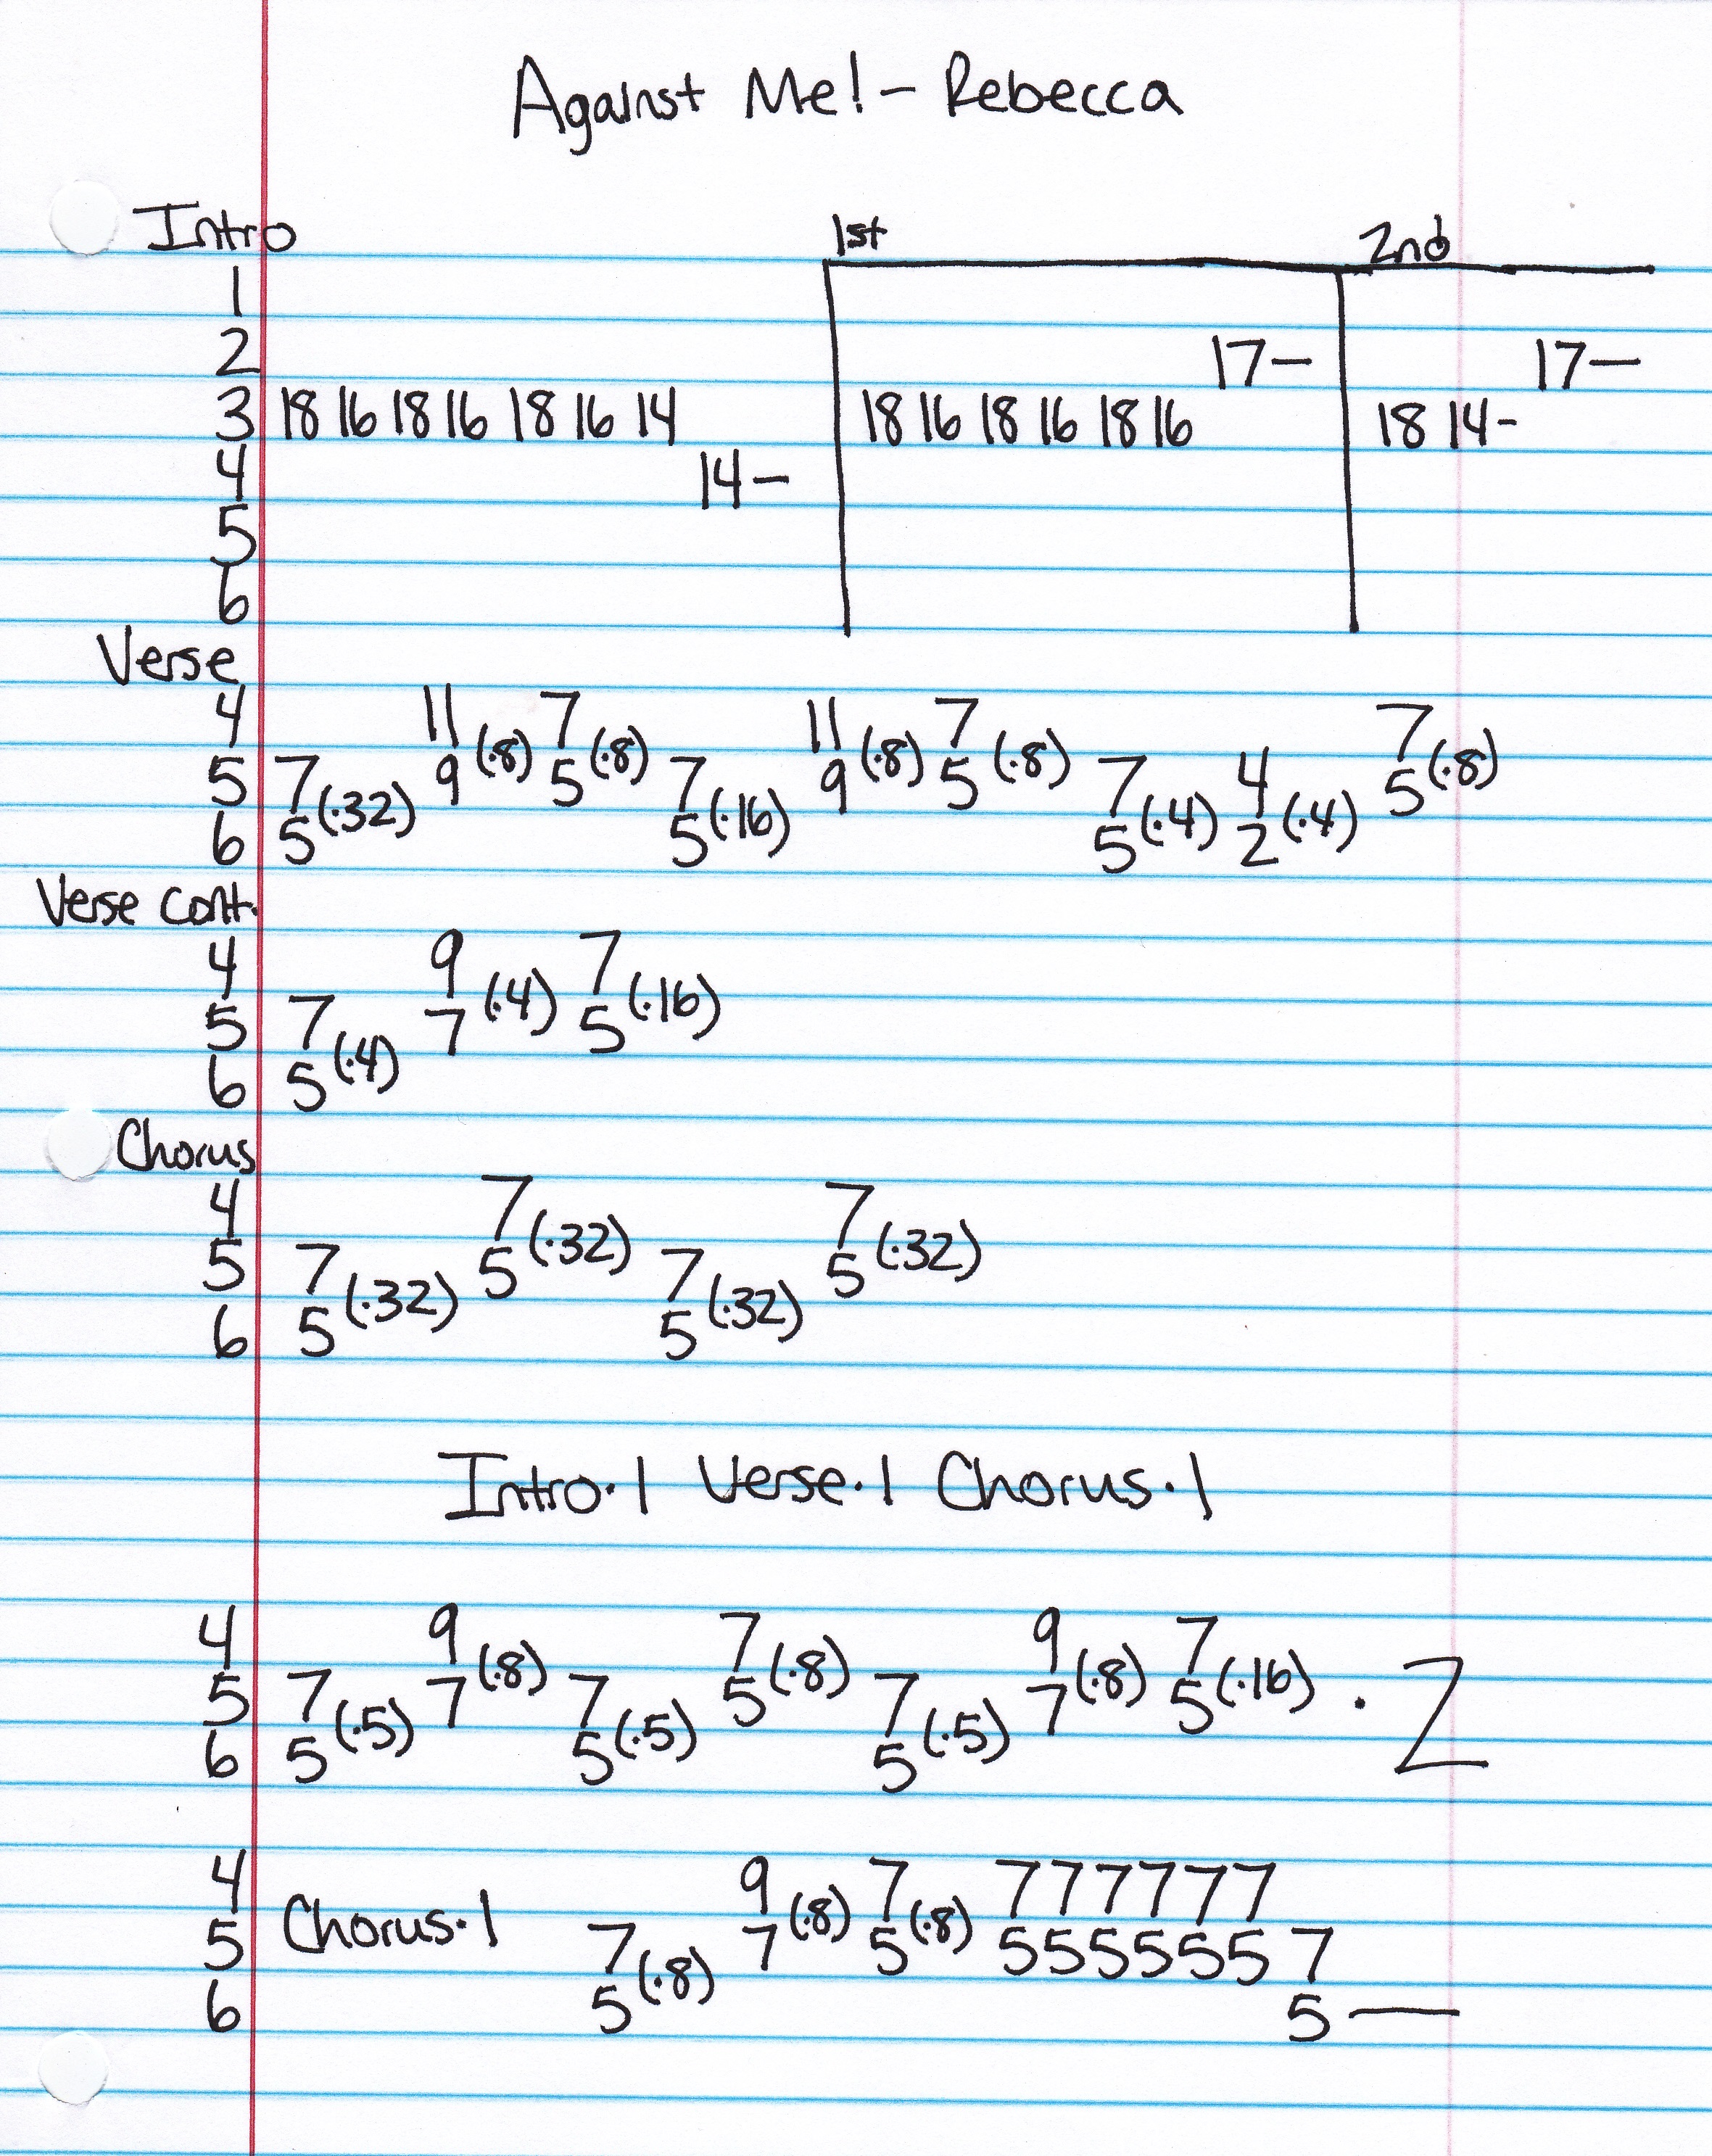 Against Me! - Rebecca
Intro 1st 2nd
1
2 17- 17-
3 18 16 18 16 18 16 14 18 16 18 16 18 16 18 14-
4 14-
5
6
Verse
4 11 7 11 7 7
5 7 9 (·8) 5 (·8) 7 9 (·8) 5 (·8) 7 4 5 (·8)
6 5 (·32) 5 (·16) 5 (·4) 2 (·4)
Verse cont.
4 9 7
5 7 7 (·4) 5 (·16)
6 5 (·4)
Chorus
4 7 7
5 7 5 (·32) 7 5 (·32)
6 5 (·32) 5 (·32)
Intro·1 Verse·1 Chorus·1
4 9 7 9 7
5 7 7 (·8) 7 5 (·8) 7 7 (·8) 5 (·16) · 2
6 5 (·5) 5 (·5) 5 (·5)
4 9 7 7 7 7 7 7 7
5 Chorus·1 7 7 (·8) 5 (·8) 5 5 5 5 5 5 7
6 5 (·8) 5 —